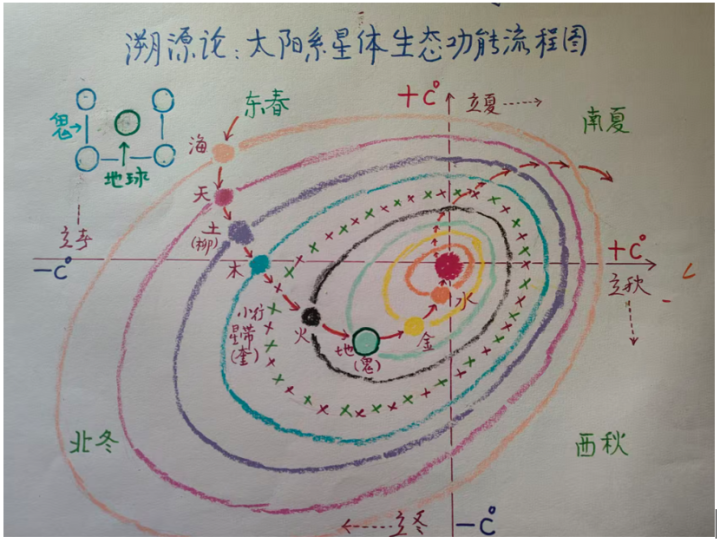 溯源论:太阳系星体生态功能流程图
东春
+C°
立夏
南夏
鬼
地球
海
天
土
(柳)
木
立春
-C°
+C°
立秋
小行
星带
(奎)
火
地
(鬼)
金
水
北冬
西秋
立冬
-C°